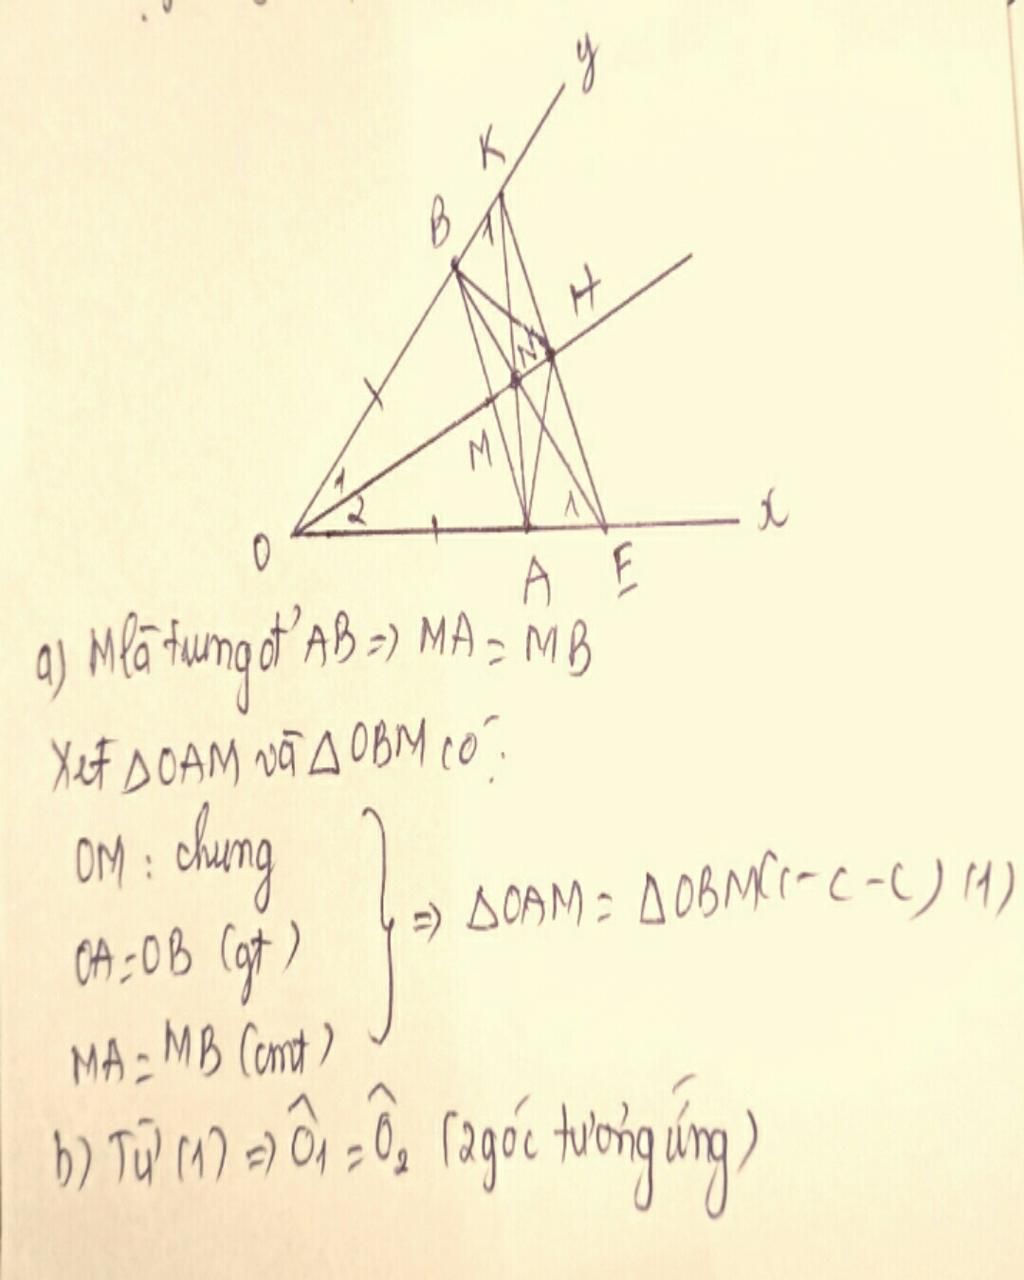 y
K
B
1
H
N
M
1
2
1
x
O
A
E
a) M là trung đ' AB => MA = MB
Xét ΔOAM và ΔOBM có:
OM : chung
OA = OB (gt)
=> ΔOAM = ΔOBM (c-c-c) (1)
MA = MB (cmt)
b) Từ (1) => Ô₁ = Ô₂ (2 góc tương ứng)